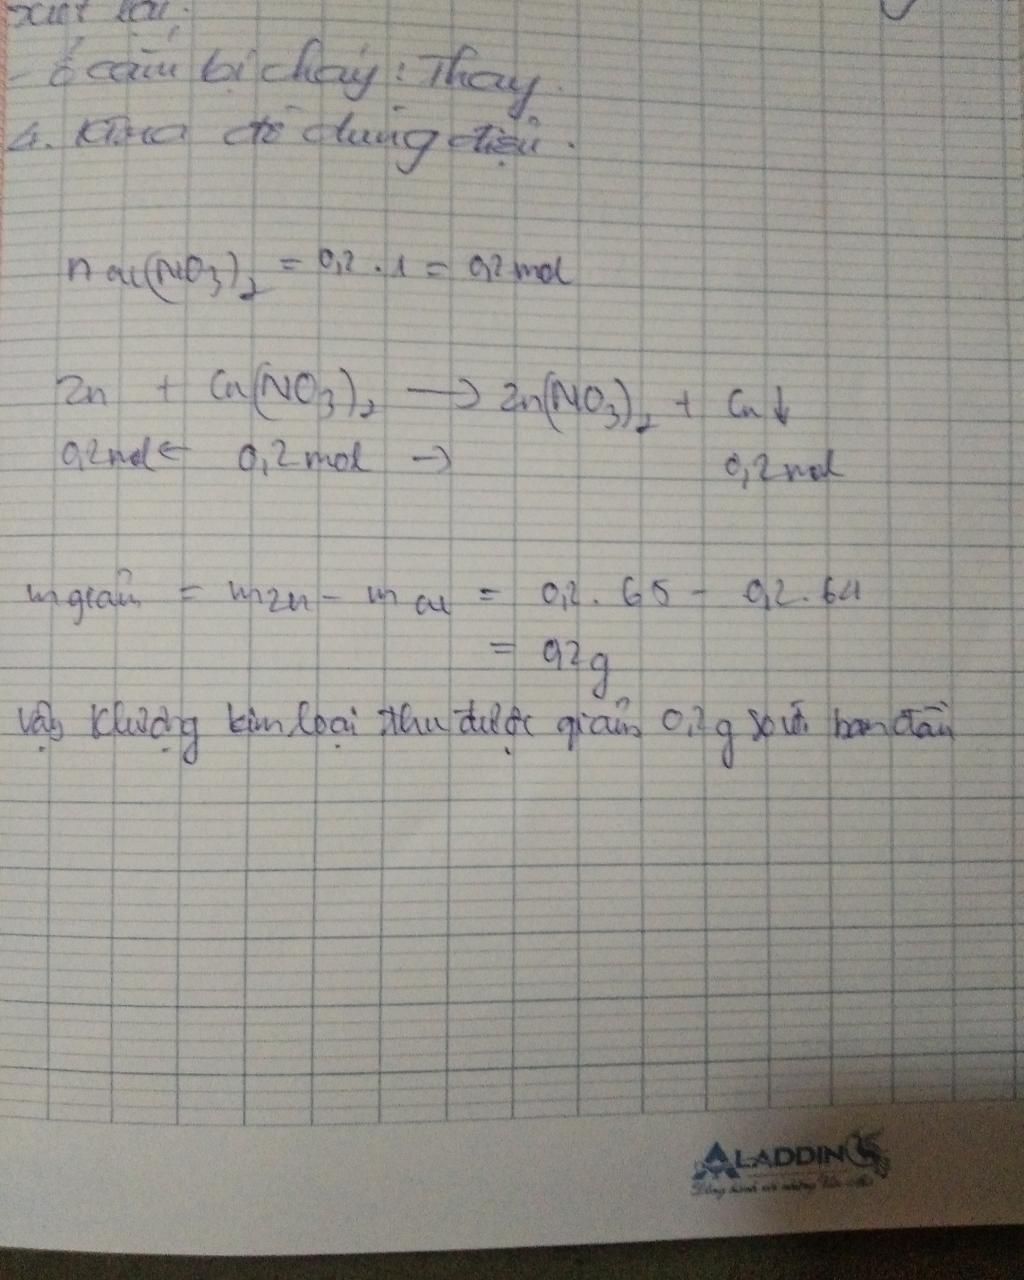 - ổ cắm bị cháy: Thay.
4. Khoá đồ dùng điện.
n Cu(NO3)2 = 0,2 . 1 = 0,2 mol
Zn + Cu(NO3)2 → Zn(NO3)2 + Cu↓
0,2 mol ← 0,2 mol → 0,2 mol
m giảm = m Zn - m Cu = 0,2 . 65 - 0,2 . 64
= 0,2 g
Vậy khối lượng kim loại thu được giảm 0,2 g so với ban đầu
ALADDIN